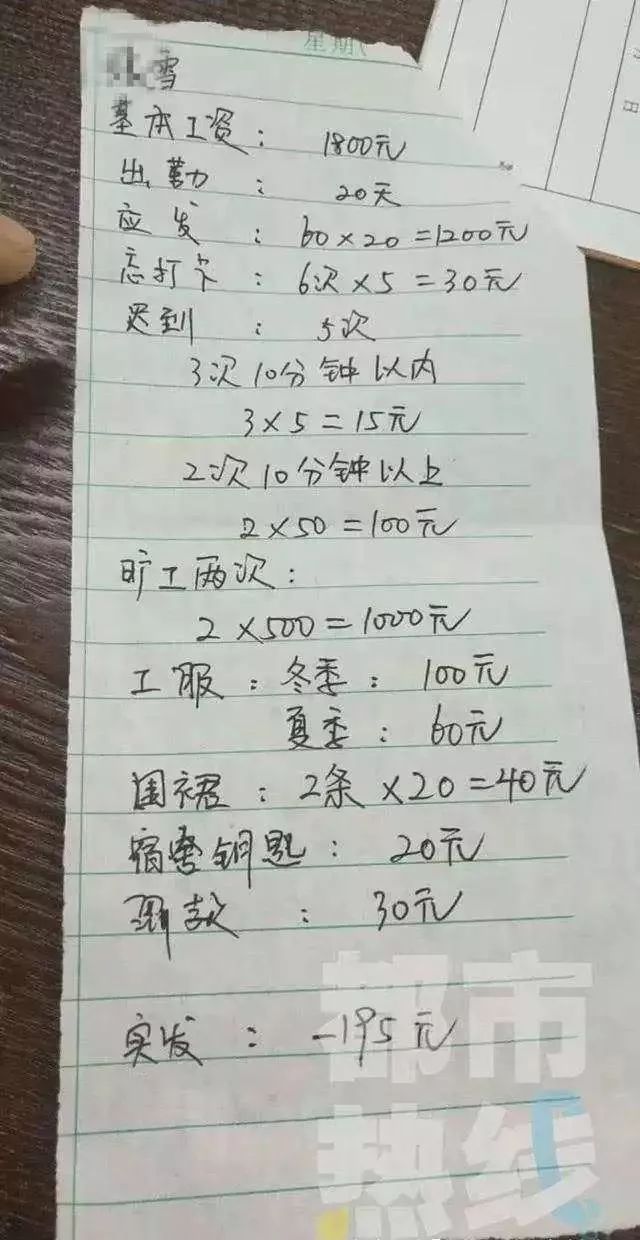 星期(
雪
基本工资： 1800元
出勤 ： 20天
应发 ： 60×20=1200元
忘打卡： 6次×5=30元
迟到 ： 5次
3次10分钟以内
3×5=15元
2次10分钟以上
2×50=100元
旷工两次：
2×500=1000元
工服：冬季： 100元
夏季： 60元
围裙：2条×20=40元
宿舍钥匙： 20元
罚款 ： 30元
实发 ： -195元
都市
热线
日